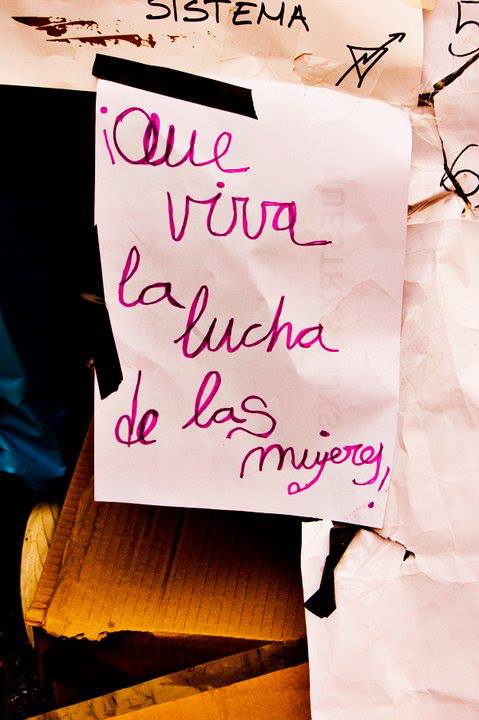 SISTEMA
5
6
¡Que
viva
la
lucha
de las
mujeres!